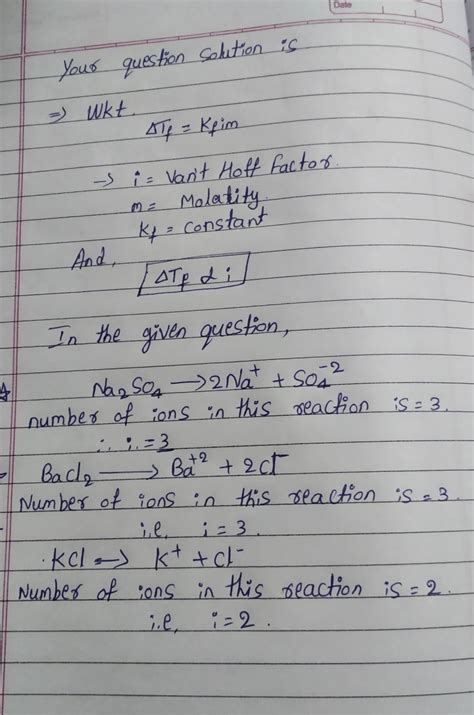 Date
Your question solution is
=> Wkt.
ΔTf = Kfim
→ i = Van't Hoff Factor.
m = Molality.
Kf = constant
And,
ΔTf α i
In the given question,
Na2SO4 → 2Na⁺ + SO4⁻²
number of ions in this reaction is = 3.
∴ i. = 3
BaCl2 → Ba⁺² + 2Cl⁻
Number of ions in this reaction is = 3.
i.e, i = 3.
KCl → K⁺ + Cl⁻
Number of ions in this reaction is = 2.
i.e, i = 2.